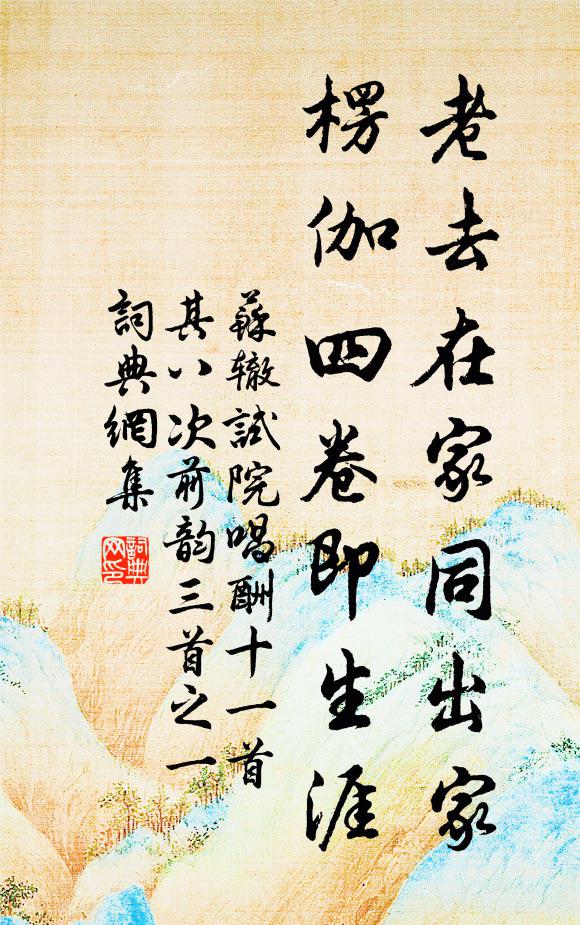 老去在家同出家
楞伽四卷即生涯
蘇辙試院唱酬十一首
其八次前韵三首之一
詞典網集
詞典网印